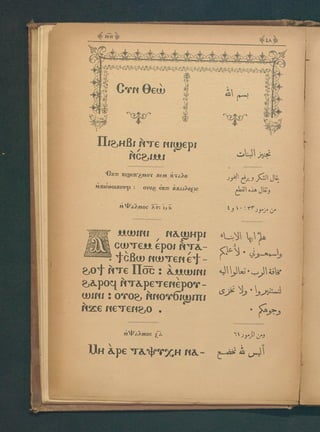 ⲙⲏ
٤٨
Ⲥⲩⲛ Ⲑⲉⲱ̅
بسم الله
Ⲡⲓϩⲏⲃⲓ ⲛ̀ⲧⲉ ⲛⲓϣⲉⲣⲓ
ⲛ̀ⲥϩⲓⲙⲓ
تجنيز البنات
يقال الشكر و يرفع البخور
وتقال هذه القطع
من مزمور ٣٣: ١٠ و ٤
Ⲁⲙⲱⲓⲛⲓ ⲛⲁϣⲏⲣⲓ
ⲥⲱⲧⲉⲙ ⲉⲣⲟⲓ ⲛ̀ⲧⲁ-
ϯⲥⲃⲱ ⲛⲱⲧⲉⲛ ⲉ̀ϯ-
ϩⲟϯ ⲛ̀ⲧⲉ Ⲡⲟ̅ⲥ̅ : ⲁ̀ⲙⲱⲓⲛⲓ
ϩⲁⲣⲟϥ ⲛ̀ⲧⲁⲣⲉⲧⲉⲛⲉⲣⲟⲩ-
ⲱⲓⲛⲓ : ⲟⲩⲟϩ ⲛ̀ⲛⲟⲩϭⲓϣⲓⲡⲓ
ⲛ̀ϫⲉ ⲛⲉⲧⲉⲛϩⲟ .
هلم ايها الابناء
واسمعوني ٠ لأعلمكم
مخافة الرب ٠ تعالوا اليه
لتستنيروا ٠ ولا تخزى
وجوهكم ٠
ومن المزمور ٦١
Ⲙⲏ ⲁ̀ⲣⲉ ⲧⲁⲯⲩⲭⲏ ⲛⲁ-
أليس لله تخضع